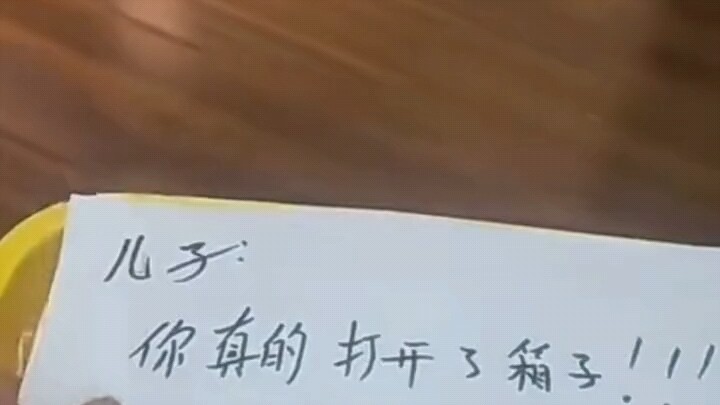 儿子：
你真的打开了箱子!!!